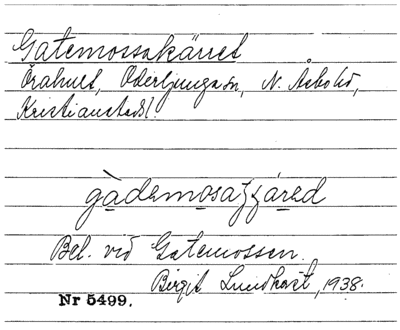 Gatemossakärret
Örahult, Oderljunga sn, N. Åsbo hd,
Kristianstads l.
gàdemosaʒʒáred
Bel. vid Gatemossen.
Birgit Lundkvist, 1938.
Nr 5499.